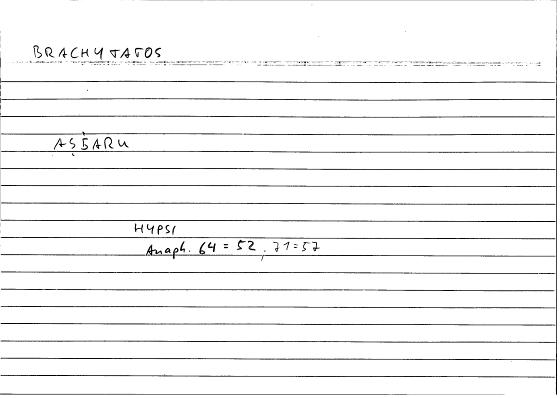 BRACHYTATOS
AṢṠARU
HYPSI
Anaph. 64 = 52, 71=57